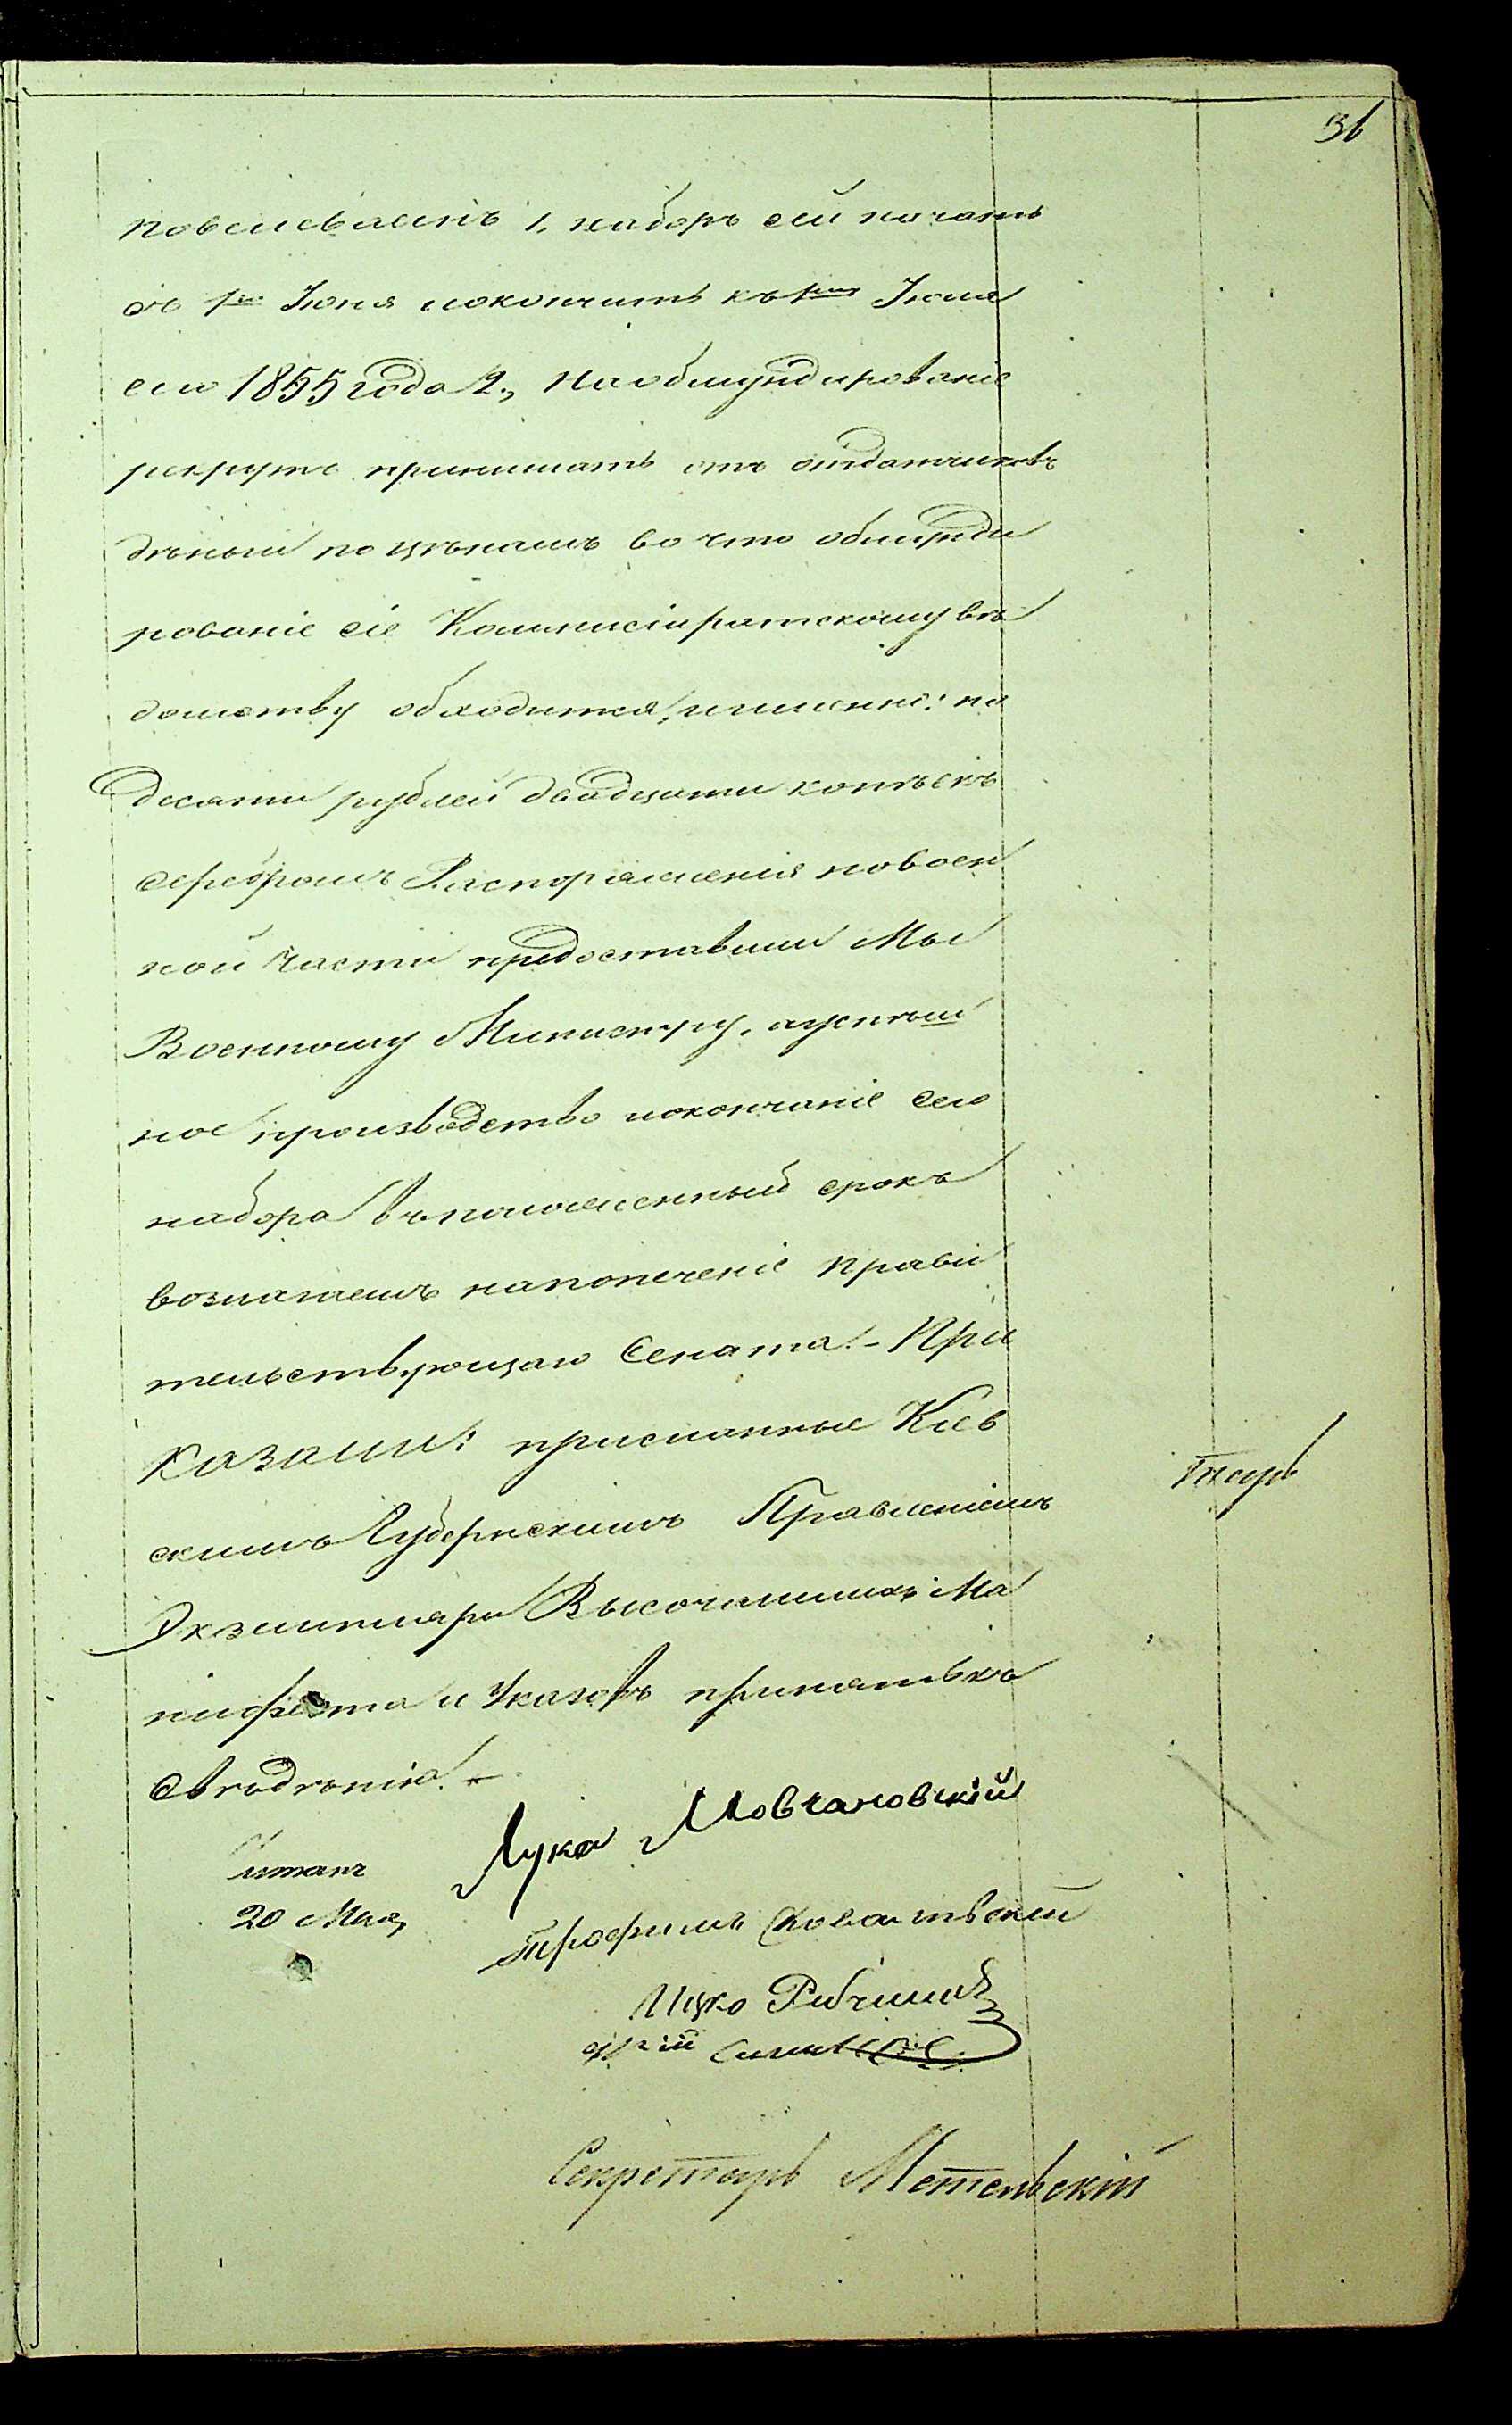 36
повелеваемъ 1, наборъ сей начать
съ 1го Іюня и окончить къ 1му Іюля
сего 1855 года 2., На обмундированіе
рекрутъ принимать отъ отдатчиковъ
деньги по ценамъ во что обмунди
рованіе сіе Коммисіиратскому ве
домству обходится, именно: по
десяти рублей двадцати копѣекъ
серебромъ Распоряженія по воен
ной части предоставили Мы
Военному Министру, а успѣш
ное производство и окончаніе сего
набора въ положенный срокъ
возлагаемъ на попеченіе прави
тельствующаго Сената. - При
казали: присланные Кіев
скимъ Губернскимъ Правленіемъ
Экземпляры Высочайшихъ Ма
нифеста и Указовъ принять къ
сведенію. -
Лука Мовчановскій
Читалъ
20 Мая,
Трофимъ
Ицко
Секретарь Метельскій